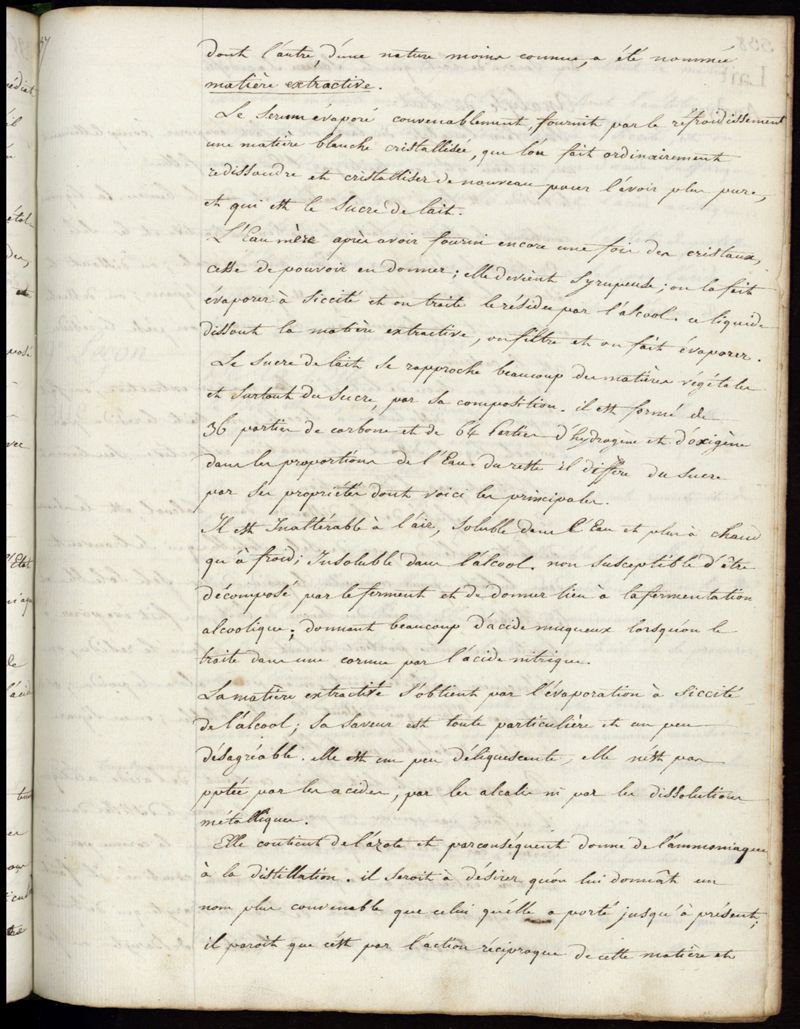 dont l'autre, d'une nature moins connue, a été nommée
matière extractive.
Le Serum évaporé convenablement, fournit par le réfroidissement
une matière blanche cristallisée, que l'on fait ordinairement
redissoudre et cristalliser de nouveau pour l'avoir plus pure,
et qui est le Sucre de lait.
L'Eau mère après avoir fourni encore une fois des cristaux,
cesse de pouvoir en donner; elle devient Syrupeuse; on la fait
évaporer à Siccité et on traite le résidu par l'alcool. ce liquide
dissout la matière extractive, on filtre et on fait évaporer.
Le Sucre de lait se rapproche beaucoup des matières végétales
et Surtout du Sucre, par sa composition. il est formé de
36 parties de carbone et de 64 Parties d'hydrogene et d'oxigène
dans les proportions de l'Eau. du reste il diffère du Sucre
par Ses propriétés dont voici les principales.
Il est Inaltérable à l'air, Soluble dans l'Eau et plus à chaud
qu'à froid; Insoluble dans l'alcool. non susceptible d'être
décomposé par le ferment et de donner lieu à la fermentation
alcoolique; donnent beaucoup d'acide muqueux lorsqu'on le
traite dans une cornue par l'acide nitrique.
La matière extractive S'obtient par l'évaporation à Siccité
de l'alcool; sa Saveur est toute particulière et un peu
désagréable. elle est un peu déliquescente, elle n'est pas
pptée par les acides, par les alcalis ni par les dissolutions
métalliques.
Elle contient de l'azote et parconséquent donne de l'ammoniaque
à la distillation. il seroit à désirer qu'on lui donnât un
nom plus convenable que celui qu'elle a porté jusqu'à présent;
il paroît que c'est par l'action réciproque de cette matière et